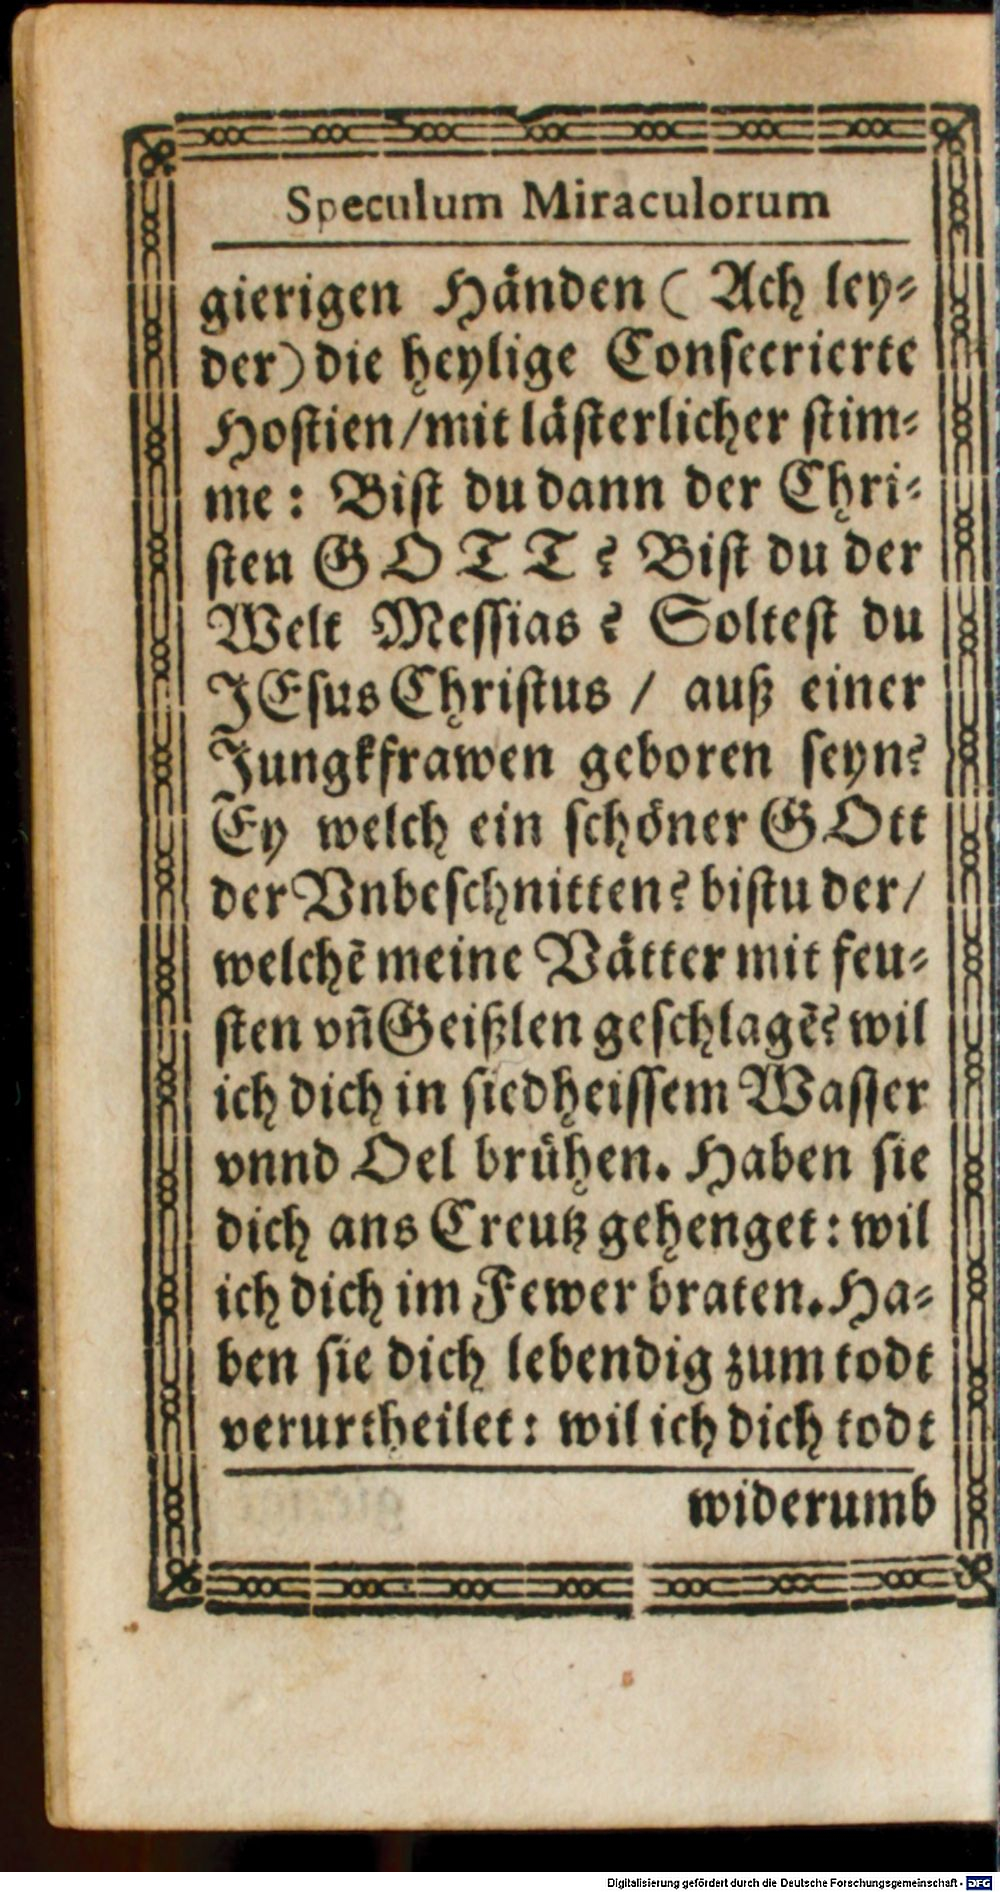 Speculum Miraculorum
gierigen Händen ( Ach ley⸗
der) die heylige Consecrierte
Hostien/mit lästerlicher stim⸗
me: Bist du dann der Chri⸗
sten GOTT? Bist du der
Welt Messias? Soltest du
JEsus Christus / auß einer
Jungkfrawen geboren seyn?
Ey welch ein schöner GOtt
der Vnbeschnitten? bistu der/
welchē meine Vätter mit feu⸗
sten vñ Geißlen geschlagē? wil
ich dich in siedheissem Wasser
vnnd Oel brühen. Haben sie
dich ans Creutz gehenget: wil
ich dich im Fewer braten. Ha⸗
ben sie dich lebendig zum todt
verurtheilet: wil ich dich todt
widerumb
Digitalisierung gefördert durch die Deutsche Forschungsgemeinschaft - DFG